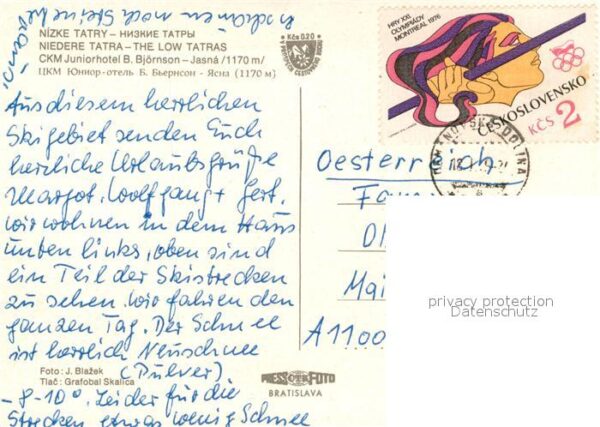 NÍZKE TATRY – НИЗКИЕ ТАТРЫ
NIEDERE TATRA – THE LOW TATRAS
CKM Juniorhotel B. Björnson – Jasná /1170 m/
ЦКМ Юниор-отель Б. Бьернсон - Ясна (1170 м)
Kčs 0,20
Aus diesem herrlichen
Skigebiet senden Euch
herzliche Urlaubsgrüße
Margot, Wolfgang + Gert.
Wir wohnen in dem Haus
unten links, oben sind
ein Teil der Skistrecken
zu sehen. Wir fahren den
ganzen Tag. Der Schnee
ist herrlich Neuschnee
(Pulver)
-8-10°. Leider für die
Strecken etwas wenig Schnee
Foto: J. Blažek
Tlač: Grafobal Skalica
PRESSFOTO
BRATISLAVA
HRY XXI.
OLYMPIÁDY
MONTREAL 1976
ČESKOSLOVENSKO
KČS 2
Oesterreich
Fam
Mai
A1100
privacy protection
Datenschutz